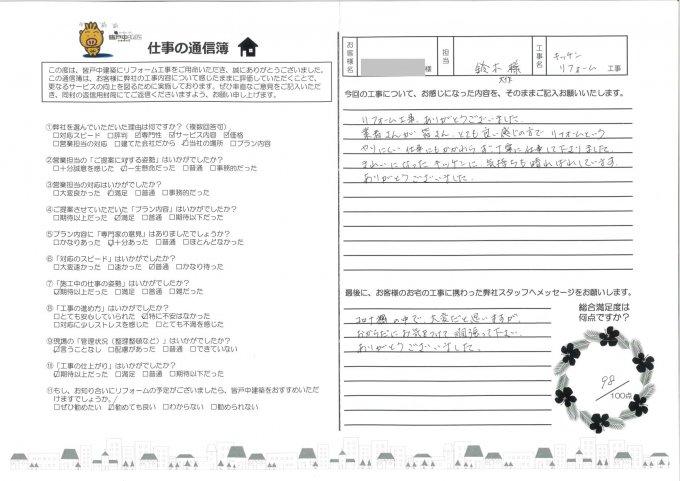 皆戸中建築
仕事の通信簿
この度は、皆戸中建築にリフォーム工事をご用命いただき、誠にありがとうございました。
この通信簿は、お客様に弊社の工事内容について感じたままに評価していただくことで、
更なるサービスの向上を図るために実施しております。ぜひ率直なご意見をご記入いただ
き、同封の返信用封筒にてご返信くださいますよう、お願い申し上げます。
①弊社を選んでいただいた理由は何ですか?(複数回答可)
□対応スピード □評判 ☑専門性 ☑サービス内容 ☑価格
□営業担当の対応 □建てた会社だから ☑当社の場所 □プラン内容
②営業担当の「ご提案に対する姿勢」はいかがでしたか?
□十分誠意を感じた ☑一生懸命だった □普通 □事務的だった
③営業担当の対応はいかがでしたか?
□大変良かった ☑満足 □普通 □事務的だった
④ご提案させていただいた「プラン内容」はいかがでしたか?
□期待以上だった ☑満足 □普通 □期待以下だった
⑤プラン内容に「専門家の意見」はありましたでしょうか?
□かなりあった ☑十分あった □普通 □ほとんどなかった
⑥「対応のスピード」はいかがでしたか?
□大変速かった □速かった ☑普通 □かなり待った
⑦「施工中の仕事の姿勢」はいかがでしたか?
☑期待以上だった □満足 □普通 □雑だった
⑧「工事の進め方」はいかがでしたか?
□とても安心していられた ☑特に不安はなかった
□対応に少しストレスを感じた □とても不満を感じた
⑨現場の「管理状況(整理整頓など)」はいかがでしたか?
☑言うことなし □配慮があった □普通 □できていない
⑩「工事の仕上がり」はいかがでしたか?
☑期待以上だった □満足 □普通 □期待以下だった
⑪もし、お知り合いにリフォームの予定がございましたら、皆戸中建築をおすすめいただ
けますでしょうか?
□ぜひ勧めたい ☑勧めても良い □わからない □勧められない
お客様名 様 担当 鈴木 様 大作 工事名 キッチン
リフォーム 工事
今回の工事について、お感じになった内容を、そのままご記入お願いいたします。
リフォーム工事、ありがとうございました。
業者さんが皆さん、とても良い感じの方で リフォームという
やりにくい仕事にもかかわらず、丁寧に仕事して下さりました。
きれいになった キッチンに 気持ちも晴ればれしています。
ありがとうございました。
最後に、お客様のお宅の工事に携わった弊社スタッフへメッセージをお願いします。
コロナ禍の中で、大変だと思いますが
おからだに お気をつけて 頑張って下さい。
ありがとうございました。
総合満足度は
何点ですか?
98
/100点